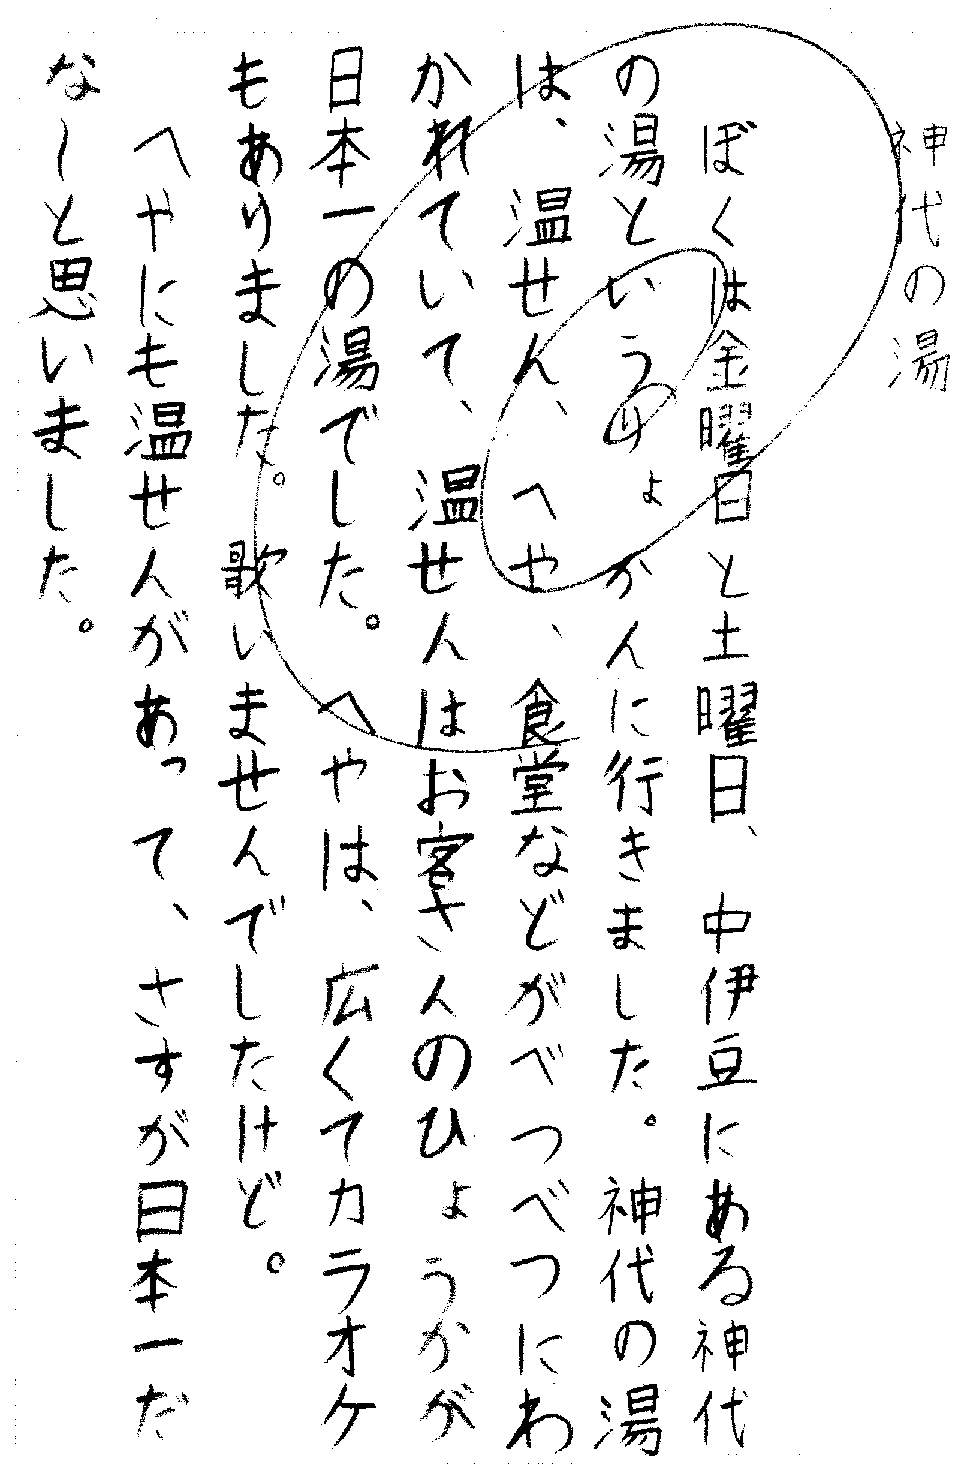 神代の湯
ぼくは金曜日と土曜日、中伊豆にある神代
の湯というりょかんに行きました。神代の湯
は、温せん、へや、食堂などがべつべつにわ
かれていて、温せんはお客さんのひょうかが
日本一の湯でした。へやは、広くてカラオケ
もありました。歌いませんでしたけど。
へやにも温せんがあって、さすが日本一だ
な～と思いました。